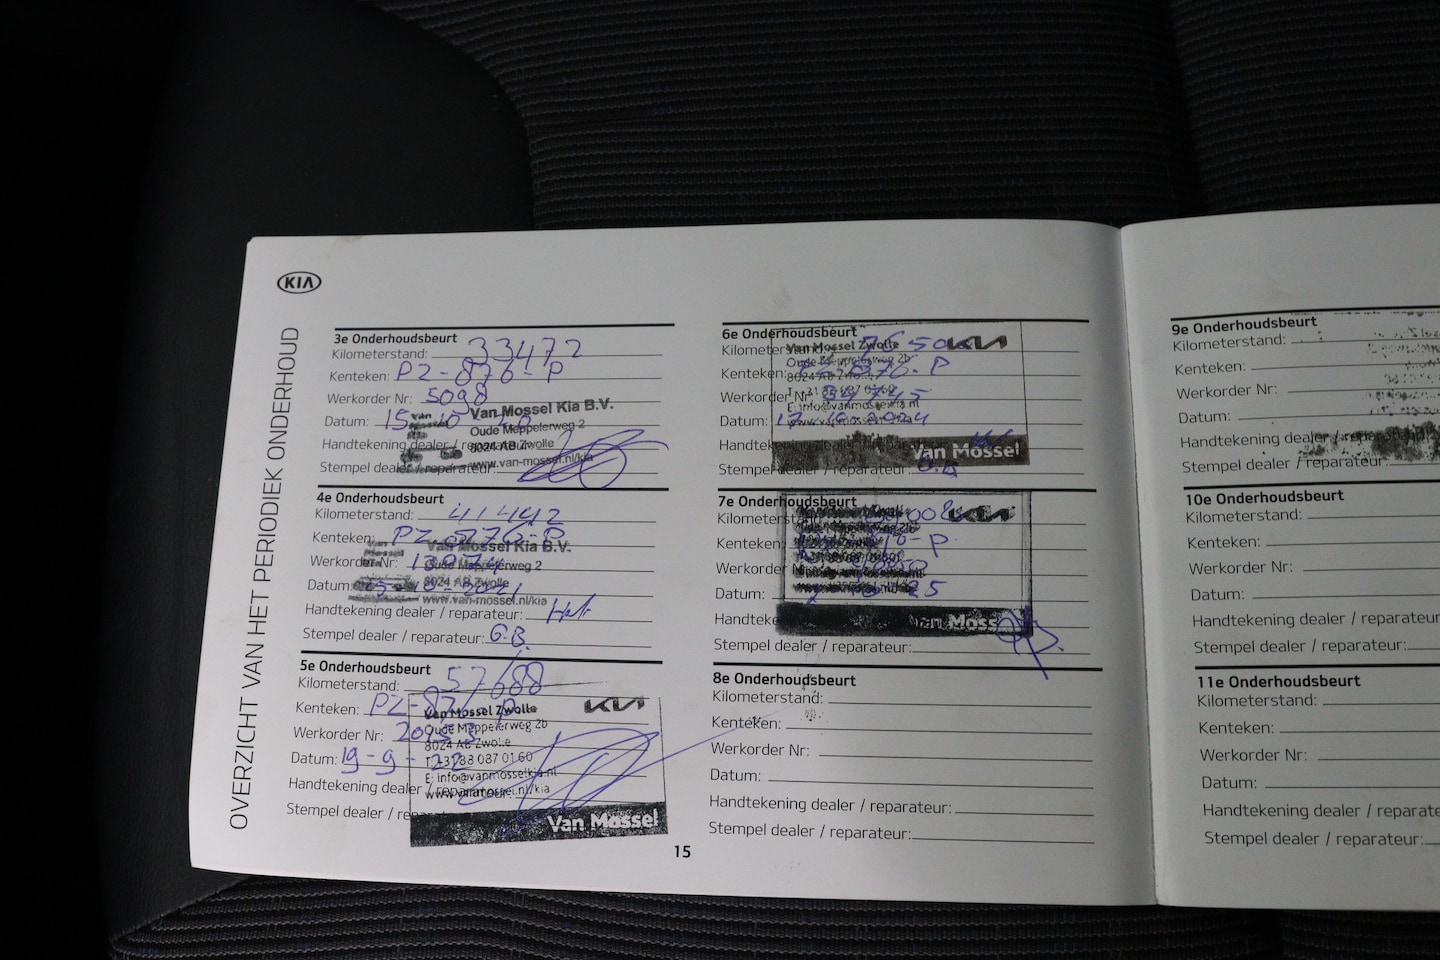 KIA
OVERZICHT VAN HET PERIODIEK ONDERHOUD
3e Onderhoudsbeurt
Kilometerstand: 33472
Kenteken: PZ-876-P
Werkorder Nr: 5098
Datum: 15-10-20
Handtekening dealer / reparateur:
Stempel dealer / reparateur:
Van Mossel Kia B.V.
Oude Meppelerweg 2
8024 AB Zwolle
www.van-mossel.nl/kia
4e Onderhoudsbeurt
Kilometerstand: 41442
Kenteken: PZ-876-P
Werkorder Nr:
Datum: 2021
Handtekening dealer / reparateur:
Stempel dealer / reparateur: G.B.
Van Mossel Kia B.V.
Oude Meppelerweg 2
8024 AB Zwolle
www.van-mossel.nl/kia
5e Onderhoudsbeurt
Kilometerstand: 57688
Kenteken: PZ-876-P
Werkorder Nr:
Datum: 19-9-22
Handtekening dealer / reparateur:
Stempel dealer / reparateur:
KIA
Van Mossel Zwolle
Oude Meppelerweg 2b
8024 AB Zwolle
T: +31 88 087 01 60
E: info@vanmosselkia.nl
www.vanmossel.nl/kia
Van Mossel
15
6e Onderhoudsbeurt
Kilometerstand:
Kenteken: -876-P
Werkorder Nr:
Datum: 2024
Handtekening dealer / reparateur:
Stempel dealer / reparateur: G.B.
KIA
Van Mossel Zwolle
Oude Meppelerweg 2b
8024 AB Zwolle
E: info@vanmosselkia.nl
Van Mossel
7e Onderhoudsbeurt
Kilometerstand:
Kenteken:
Werkorder Nr:
Datum: 25
Stempel dealer / reparateur:
KIA
Van Mossel
8e Onderhoudsbeurt
Kilometerstand:
Kenteken:
Werkorder Nr:
Datum:
Handtekening dealer / reparateur:
Stempel dealer / reparateur:
9e Onderhoudsbeurt
Kilometerstand:
Kenteken:
Werkorder Nr:
Datum:
Handtekening dealer / reparateur:
Stempel dealer / reparateur:
10e Onderhoudsbeurt
Kilometerstand:
Kenteken:
Werkorder Nr:
Datum:
Handtekening dealer / reparateur
Stempel dealer / reparateur:
11e Onderhoudsbeurt
Kilometerstand:
Kenteken:
Werkorder Nr:
Datum:
Handtekening dealer / reparate
Stempel dealer / reparateur: